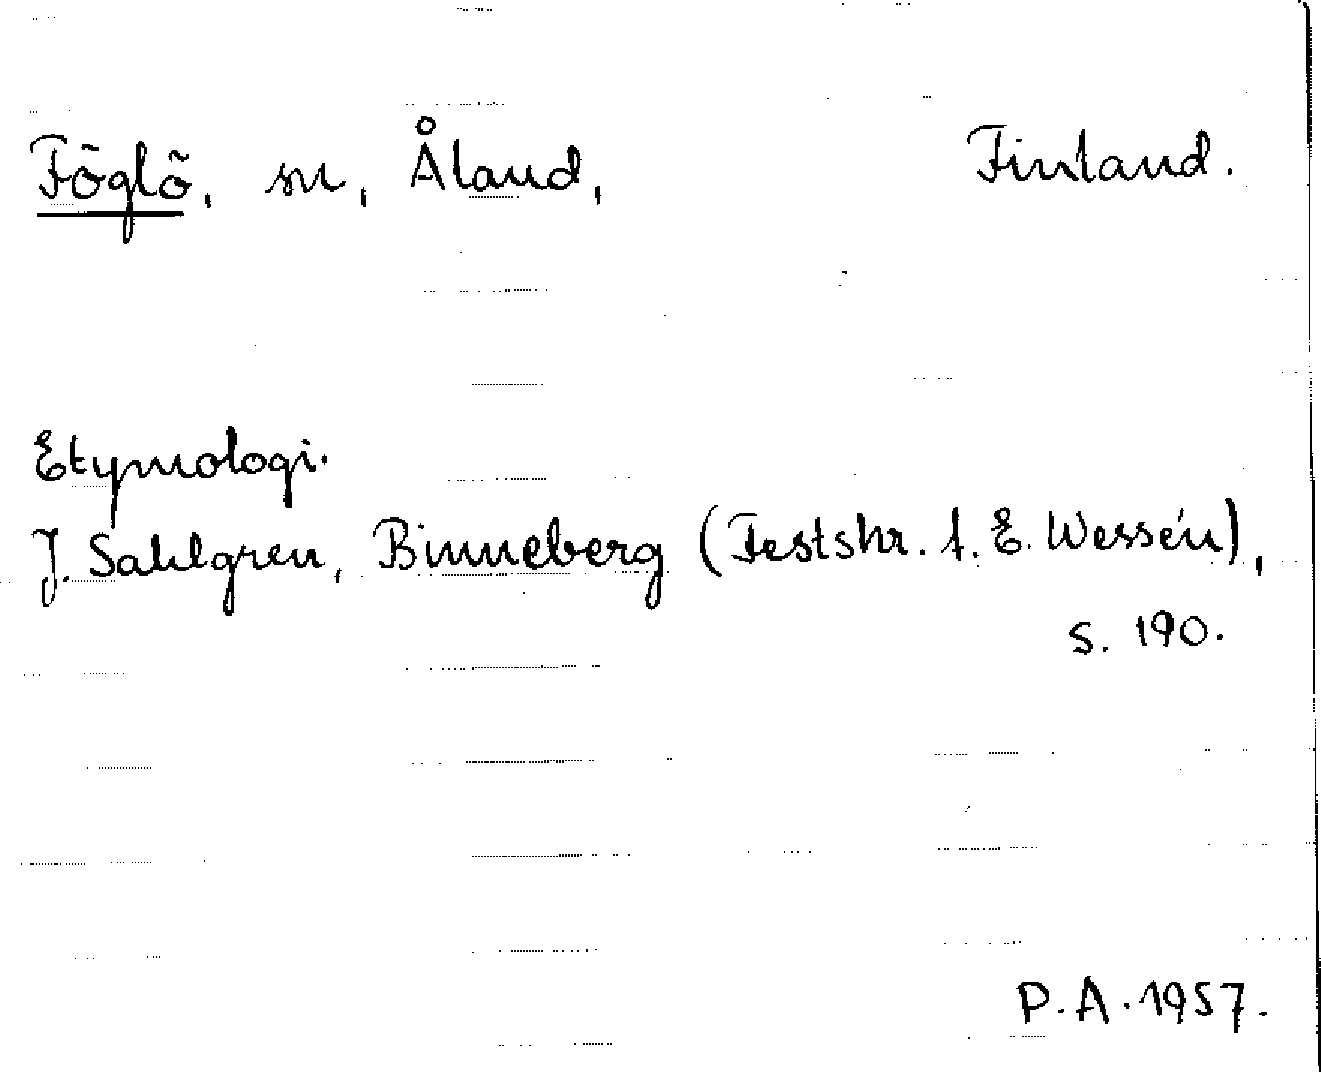 Föglö, sn, Åland, Finland.
Etymologi.
J. Sahlgren, Binneberg (Festskr. t. E. Wessén),
s. 190.
P.A. 1957.